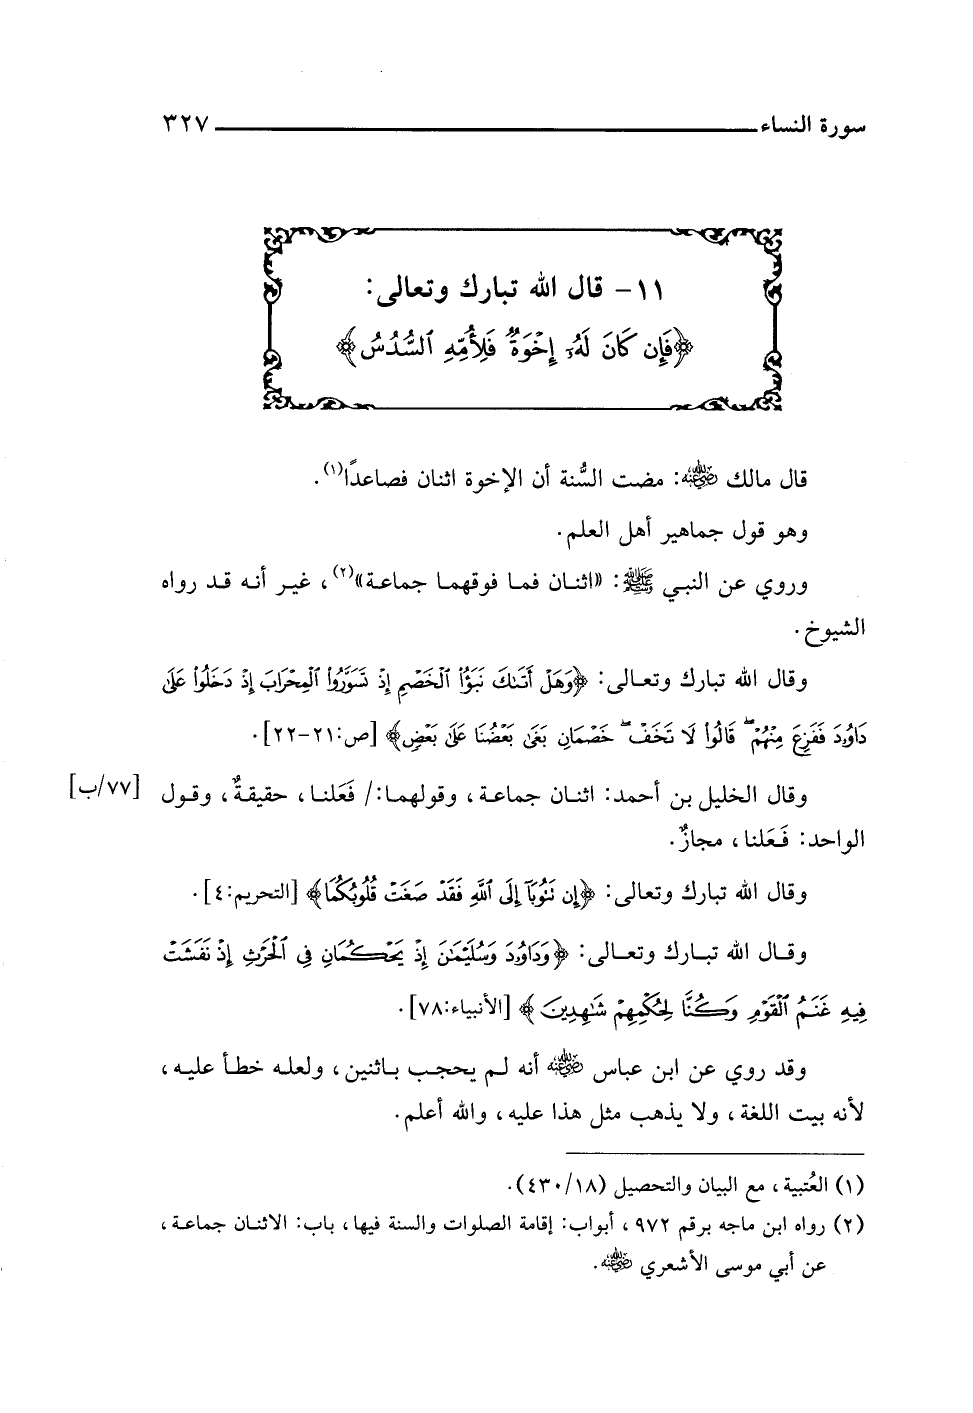 سورة النساء ٣٢٧
١١- قال الله تبارك وتعالى:
﴿فَإِن كَانَ لَهُۥٓ إِخْوَةٌ فَلِأُمِّهِ ٱلسُّدُسُ﴾
قال مالك رضي الله عنه: مضت السُّنة أن الإخوة اثنان فصاعدًا(١).
وهو قول جماهير أهل العلم.
وروي عن النبي ﷺ: «اثنان فما فوقهما جماعة»(٢)، غير أنه قد رواه
الشيوخ.
وقال الله تبارك وتعالى: ﴿وَهَلْ أَتَىٰكَ نَبَؤُا۟ ٱلْخَصْمِ إِذْ تَسَوَّرُوا۟ ٱلْمِحْرَابَ إِذْ دَخَلُوا۟ عَلَىٰ
دَاوُۥدَ فَفَزِعَ مِنْهُمْ ۖ قَالُوا۟ لَا تَخَفْ ۖ خَصْمَانِ بَغَىٰ بَعْضُنَا عَلَىٰ بَعْضٍ﴾ [ص:٢١-٢٢].
وقال الخليل بن أحمد: اثنان جماعة، وقولهما:/ فَعَلنا، حقيقةٌ، وقول [٧٧/ب]
الواحد: فَعَلنا، مجازٌ.
وقال الله تبارك وتعالى: ﴿إِن تَتُوبَآ إِلَى ٱللَّهِ فَقَدْ صَغَتْ قُلُوبُكُمَا﴾ [التحريم:٤].
وقال الله تبارك وتعالى: ﴿وَدَاوُۥدَ وَسُلَيْمَـٰنَ إِذْ يَحْكُمَانِ فِى ٱلْحَرْثِ إِذْ نَفَشَتْ
فِيهِ غَنَمُ ٱلْقَوْمِ وَكُنَّا لِحُكْمِهِمْ شَـٰهِدِينَ﴾ [الأنبياء:٧٨].
وقد روي عن ابن عباس رضي الله عنه أنه لم يحجب باثنين، ولعله خطأ عليه،
لأنه بيت اللغة، ولا يذهب مثل هذا عليه، والله أعلم.
(١) العُتبية، مع البيان والتحصيل (٤٣٠/١٨).
(٢) رواه ابن ماجه برقم ٩٧٢، أبواب: إقامة الصلوات والسنة فيها، باب: الاثنان جماعة،
عن أبي موسى الأشعري رضي الله عنه.